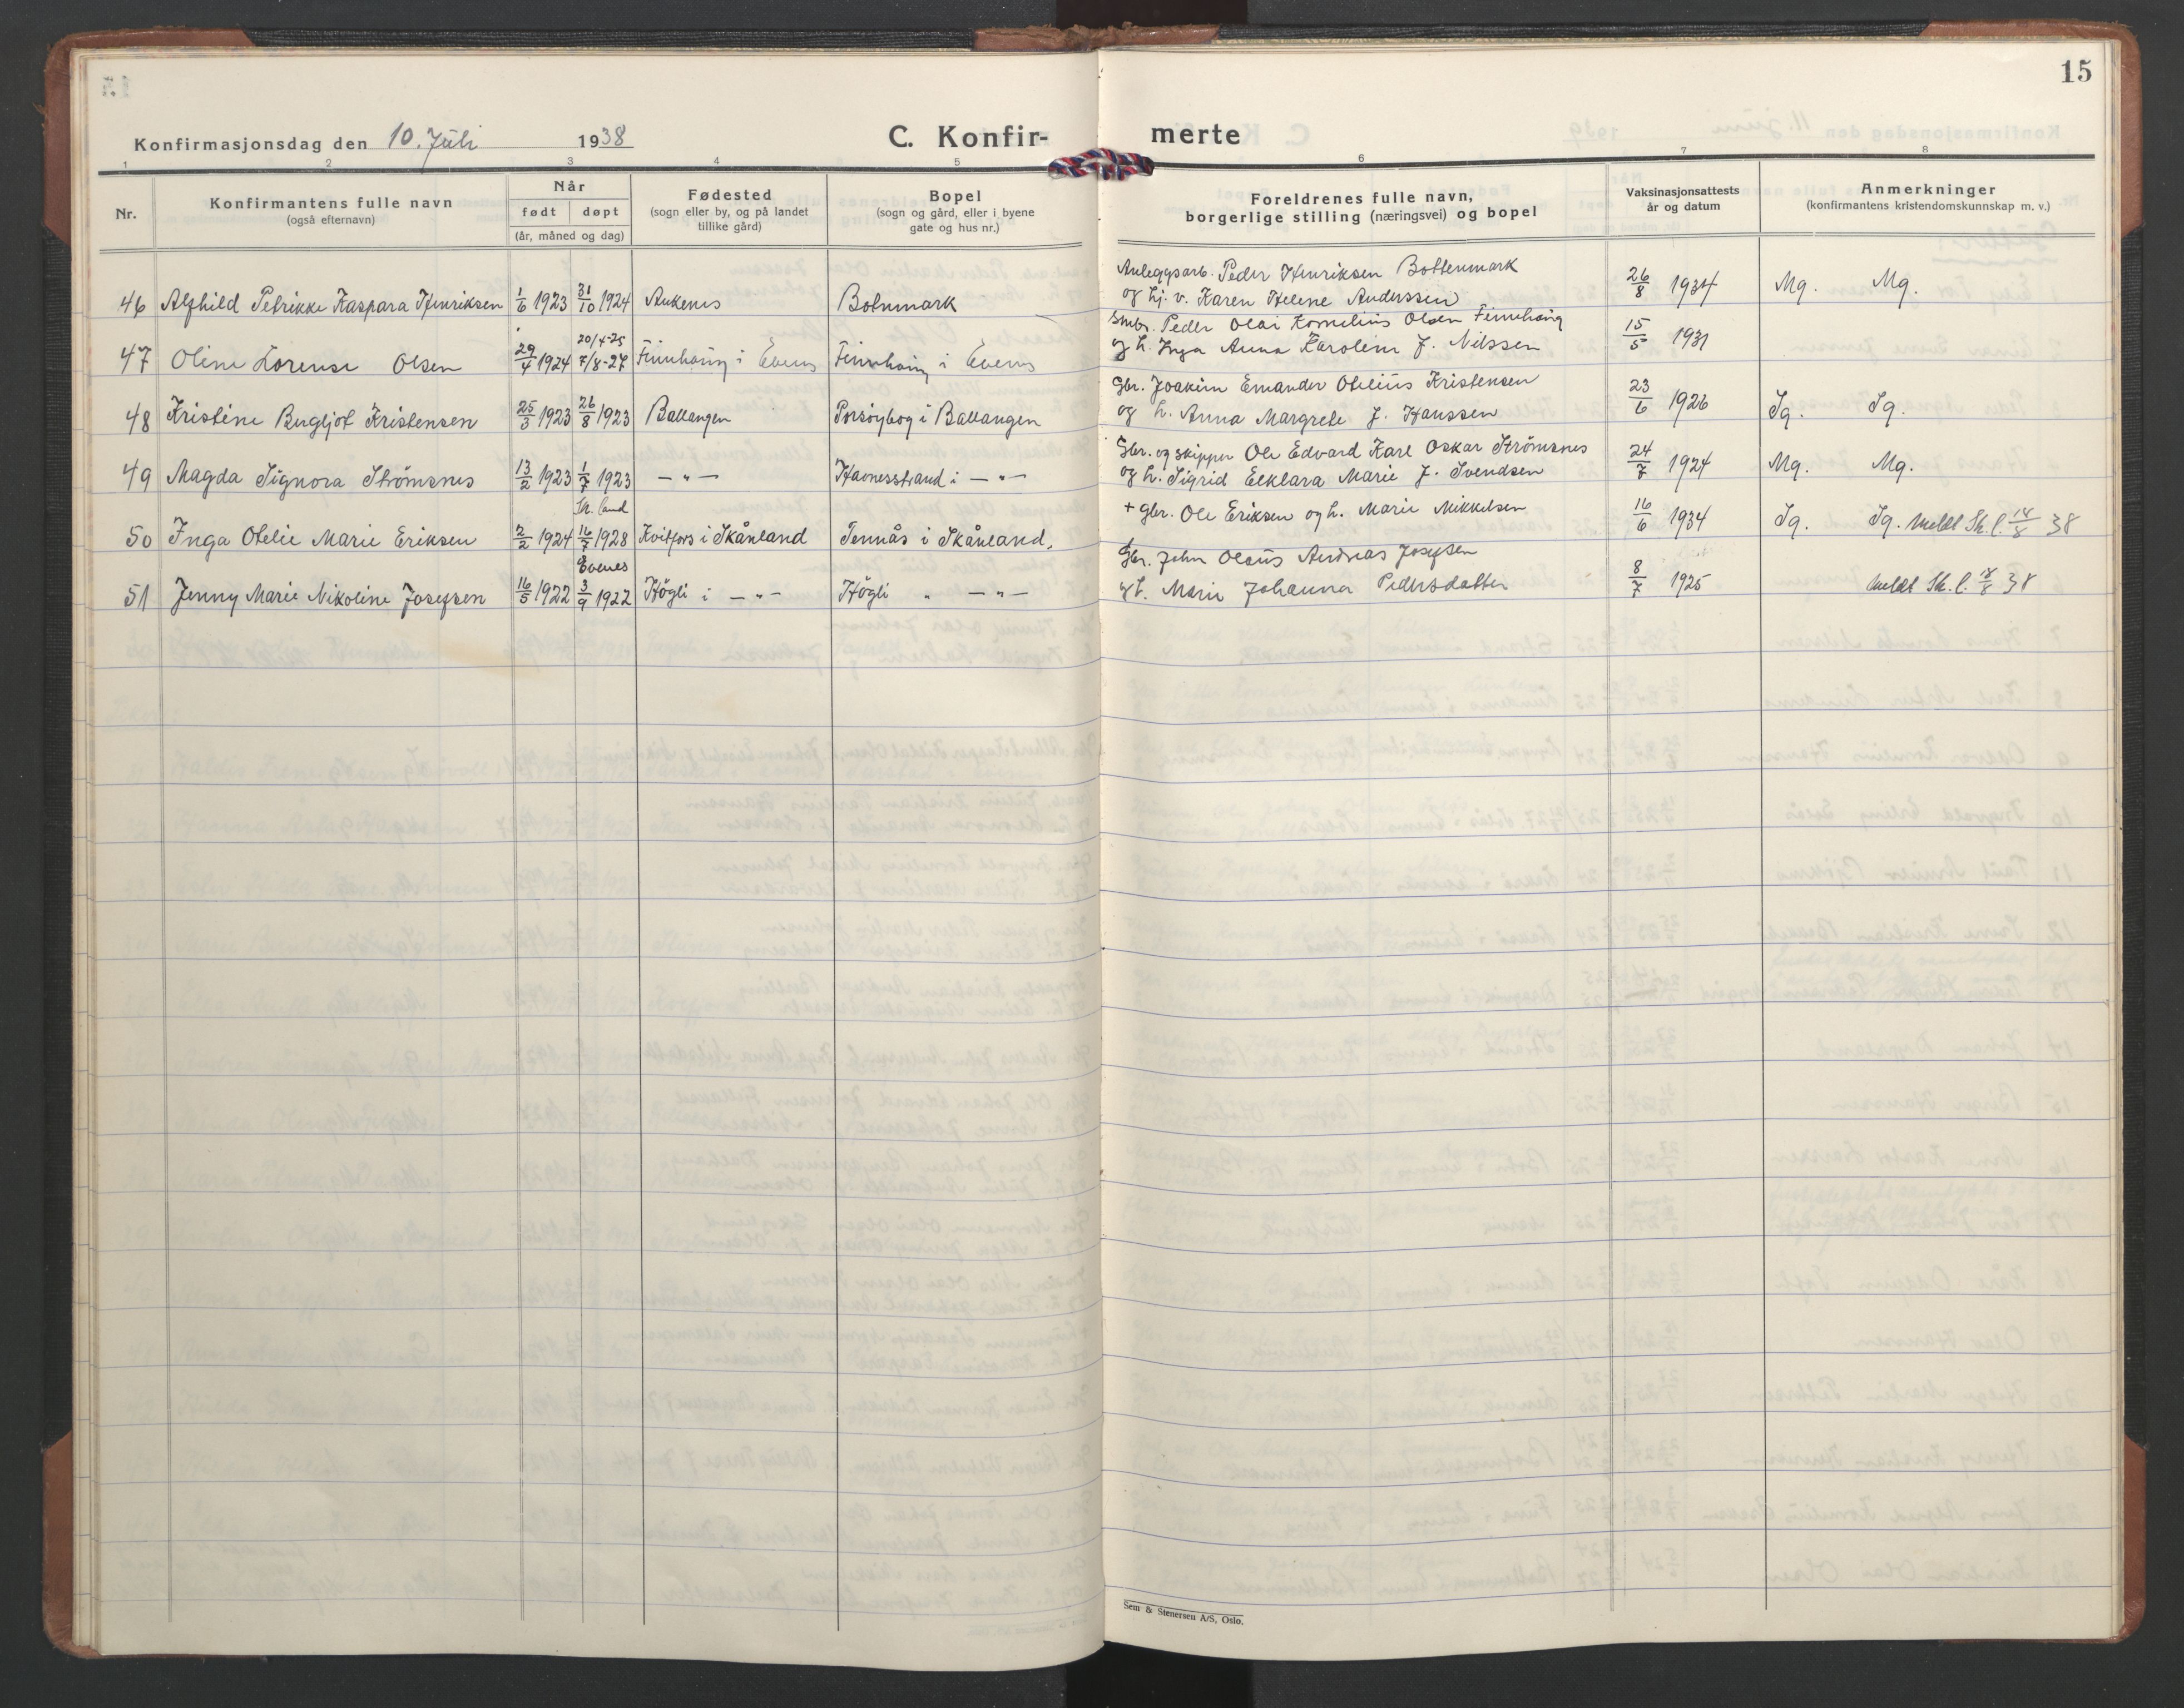 15
Konfirmasjonsdag den 10. Juli 1938
C. Konfir-
merte
1 2 3 4 5 6 7 8
Nr.
Konfirmantens fulle navn
(også efternavn)
Når
født døpt
(år, måned og dag)
Fødested
(sogn eller by, og på landet
tillike gård)
Bopel
(sogn og gård, eller i byene
gate og hus nr.)
Foreldrenes fulle navn,
borgerlige stilling (næringsvei) og bopel
Vaksinasjonsattests
år og datum
Anmerkninger
(konfirmantens kristendomskunnskap m. v.)
Anleggsarb. Peder Henriksen Bottenmark
46 Alfhild Petrikke Kaspara Henriksen 1/6 1923 31/10 1924 Ankenes Botnmark og hj. v. Karen Helene Anderssen 26/8 1934 Mg. Mg.
Smbr. Peder Olai Kornelius Olsen Finnhaug
20/4-25
47 Oline Lorense Olsen 29/4 1924 7/8-27 Finnhaug i Evenes Finnhaug i Evenes og h. Inga Anna Karoline f. Nilssen 15/5 1931
Gbr. Joakim Emander Otelius Kristensen
48 Kristine Bergljot Kristensen 25/3 1923 26/8 1923 Ballangen Porsöybog i Ballangen og h. Anna Margrete f. Hanssen 23/6 1926 Tg. Tg.
Gbr. og skipper Ole Edvard Karl Oskar Strömsnes
49 Magda Signora Strömsnes 13/2 1923 1/7 1923 — " — Havnesstrand i — " — og h. Sigrid Elklara Marie f. Svendsen 24/7 1924 Mg. Mg.
Sk.land
+ gbr. Ole Eriksen og h. Marie Mikkelsen
50 Inga Otelie Marie Eriksen 2/2 1924 16/7 1928 Kvitfors i Skånland Tennås i Skånland. 16/6 1934 Tg. Tg. meldt Sk. l. 18/8 38
Evenes
Gbr. John Olaus Andreas Josefsen
51 Jenny Marie Nikoline Josefsen 16/5 1922 3/9 1922 Högli i — " — Högli " — " — og h. Marie Johanna Pedersdatter 8/7 1925 meldt Sk. l. 18/8 38
Sem & Stenersen A/S, Oslo.